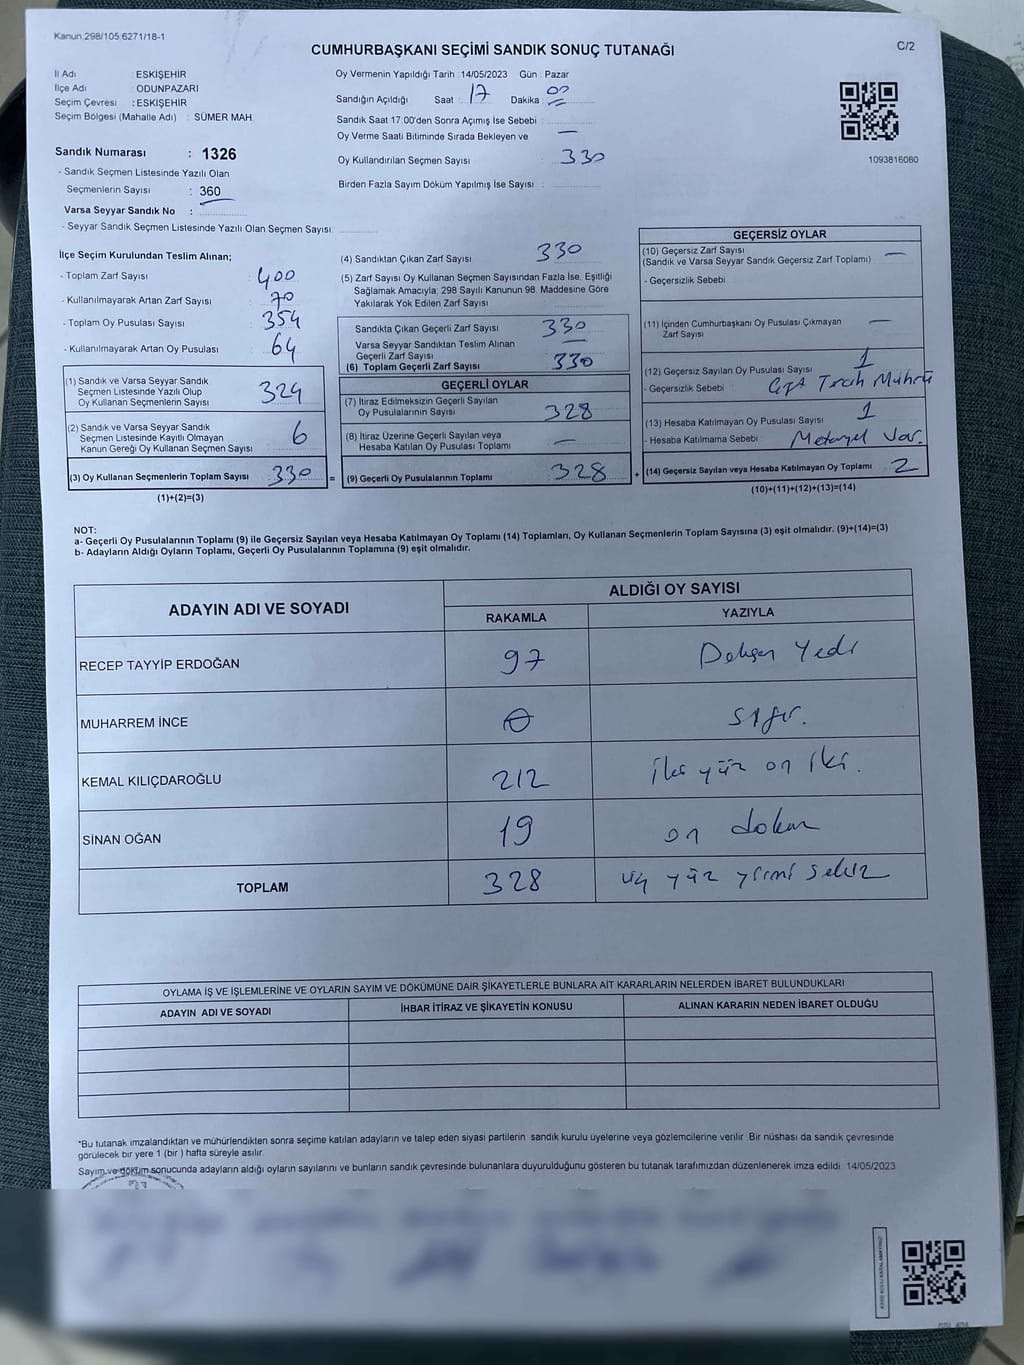 Kanun.298/105.6271/18-1
C/2
CUMHURBAŞKANI SEÇİMİ SANDIK SONUÇ TUTANAĞI
İl Adı : ESKİŞEHİR
İlçe Adı : ODUNPAZARI
Seçim Çevresi : ESKİŞEHİR
Seçim Bölgesi (Mahalle Adı) : SÜMER MAH.
Sandık Numarası : 1326
- Sandık Seçmen Listesinde Yazılı Olan
Seçmenlerin Sayısı : 360
Varsa Seyyar Sandık No :
- Seyyar Sandık Seçmen Listesinde Yazılı Olan Seçmen Sayısı:
Oy Vermenin Yapıldığı Tarih : 14/05/2023 Gün : Pazar
Sandığın Açıldığı Saat : 17 Dakika : 00
Sandık Saat 17:00'den Sonra Açımış İse Sebebi :
Oy Verme Saati Bitiminde Sırada Bekleyen ve —
Oy Kullandırılan Seçmen Sayısı : 330
Birden Fazla Sayım Döküm Yapılmış İse Sayısı :
1093816080
İlçe Seçim Kurulundan Teslim Alınan;
- Toplam Zarf Sayısı : 400
- Kullanılmayarak Artan Zarf Sayısı : 70
- Toplam Oy Pusulası Sayısı : 354
- Kullanılmayarak Artan Oy Pusulası : 64
(1) Sandık ve Varsa Seyyar Sandık
Seçmen Listesinde Yazılı Olup
Oy Kullanan Seçmenlerin Sayısı 324
(2) Sandık ve Varsa Seyyar Sandık
Seçmen Listesinde Kayıtlı Olmayan
Kanun Gereği Oy Kullanan Seçmen Sayısı 6
(3) Oy Kullanan Seçmenlerin Toplam Sayısı : 330 =
(1)+(2)=(3)
(4) Sandıktan Çıkan Zarf Sayısı : 330
(5) Zarf Sayısı Oy Kullanan Seçmen Sayısından Fazla İse, Eşitliği
Sağlamak Amacıyla; 298 Sayılı Kanunun 98. Maddesine Göre
Yakılarak Yok Edilen Zarf Sayısı
Sandıkta Çıkan Geçerli Zarf Sayısı 330
Varsa Seyyar Sandıktan Teslim Alınan
Geçerli Zarf Sayısı —
(6) Toplam Geçerli Zarf Sayısı : 330
GEÇERLİ OYLAR
(7) İtiraz Edilmeksizin Geçerli Sayılan
Oy Pusulalarının Sayısı 328
(8) İtiraz Üzerine Geçerli Sayılan veya
Hesaba Katılan Oy Pusulası Toplamı —
(9) Geçerli Oy Pusulalarının Toplamı 328 +
GEÇERSİZ OYLAR
(10) Geçersiz Zarf Sayısı
(Sandık ve Varsa Seyyar Sandık Geçersiz Zarf Toplamı) : —
- Geçersizlik Sebebi
(11) İçinden Cumhurbaşkanı Oy Pusulası Çıkmayan
Zarf Sayısı —
(12) Geçersiz Sayılan Oy Pusulası Sayısı 1
- Geçersizlik Sebebi : Tercih Mührü
(13) Hesaba Katılmayan Oy Pusulası Sayısı 1
- Hesaba Katılmama Sebebi : Var.
(14) Geçersiz Sayılan veya Hesaba Katılmayan Oy Toplamı 2
(10)+(11)+(12)+(13)=(14)
NOT:
a- Geçerli Oy Pusulalarının Toplamı (9) ile Geçersiz Sayılan veya Hesaba Katılmayan Oy Toplamı (14) Toplamları, Oy Kullanan Seçmenlerin Toplam Sayısına (3) eşit olmalıdır. (9)+(14)=(3)
b- Adayların Aldığı Oyların Toplamı, Geçerli Oy Pusulalarının Toplamına (9) eşit olmalıdır.
ADAYIN ADI VE SOYADI
ALDIĞI OY SAYISI
RAKAMLA
YAZIYLA
RECEP TAYYİP ERDOĞAN 97 Doksan Yedi
MUHARREM İNCE 0 sıfır.
KEMAL KILIÇDAROĞLU 212 İki yüz on iki.
SİNAN OĞAN 19 on dokuz
TOPLAM 328 üç yüz yirmi sekiz
OYLAMA İŞ VE İŞLEMLERİNE VE OYLARIN SAYIM VE DÖKÜMÜNE DAİR ŞİKAYETLERLE BUNLARA AİT KARARLARIN NELERDEN İBARET BULUNDUKLARI
ADAYIN ADI VE SOYADI
İHBAR İTİRAZ VE ŞİKAYETİN KONUSU
ALINAN KARARIN NEDEN İBARET OLDUĞU
*Bu tutanak imzalandıktan ve mühürlendikten sonra seçime katılan adayların ve talep eden siyasi partilerin sandık kurulu üyelerine veya gözlemcilerine verilir. Bir nüshası da sandık çevresinde
görülecek bir yere 1 (bir) hafta süreyle asılır.
Sayım ve döküm sonucunda adayların aldığı oyların sayılarını ve bunların sandık çevresinde bulunanlara duyurulduğunu gösteren bu tutanak tarafımızdan düzenlenerek imza edildi. 14/05/2023